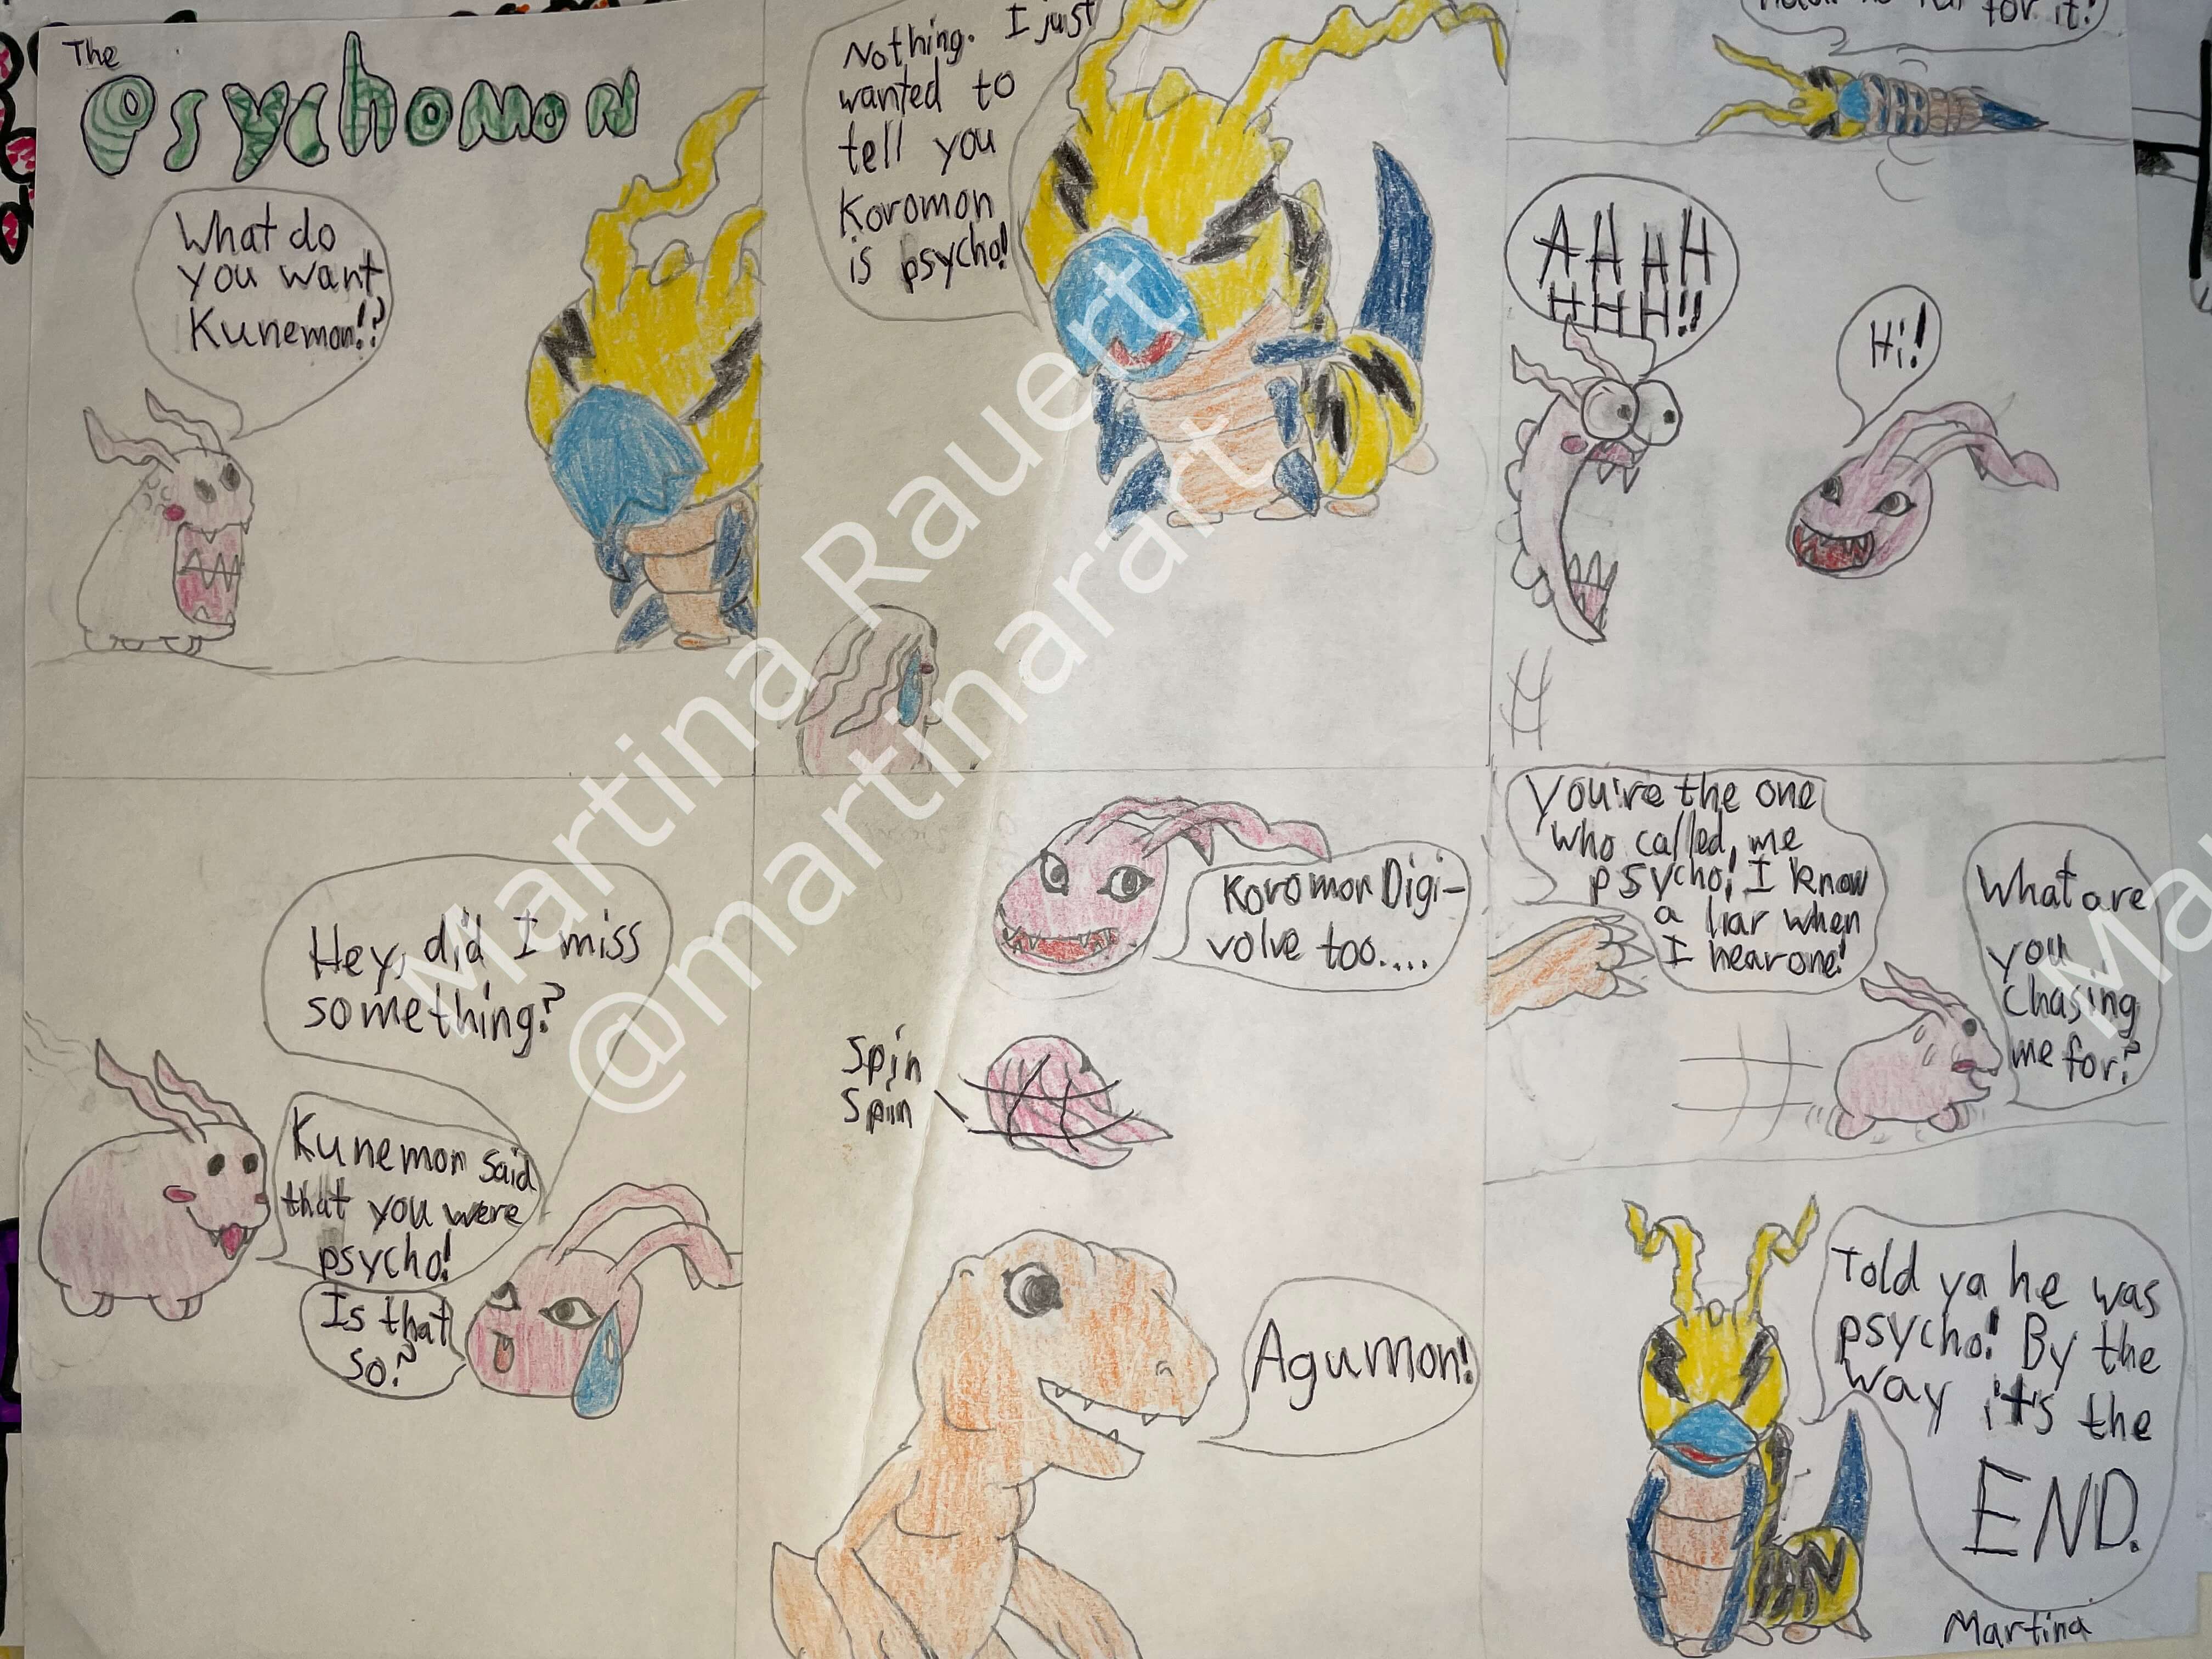 The
Psychomon
What do
you want
Kunemon!?
Nothing. I just
wanted to
tell you
Koromon
is psycho!
for it!
AHHH
HHH!!
Hi!
Hey, did I miss
something?
Kunemon said
that you were
psycho!
Is that
so?
Koromon Digi-
volve too....
Spin
Spin
Agumon!
You're the one
who called, me
psycho! I know
a liar when
I hear one!
What are
you
chasing
me for?
Told ya he was
psycho! By the
way it's the
END.
Martina
Martina Rauert
@martinarart
Ma